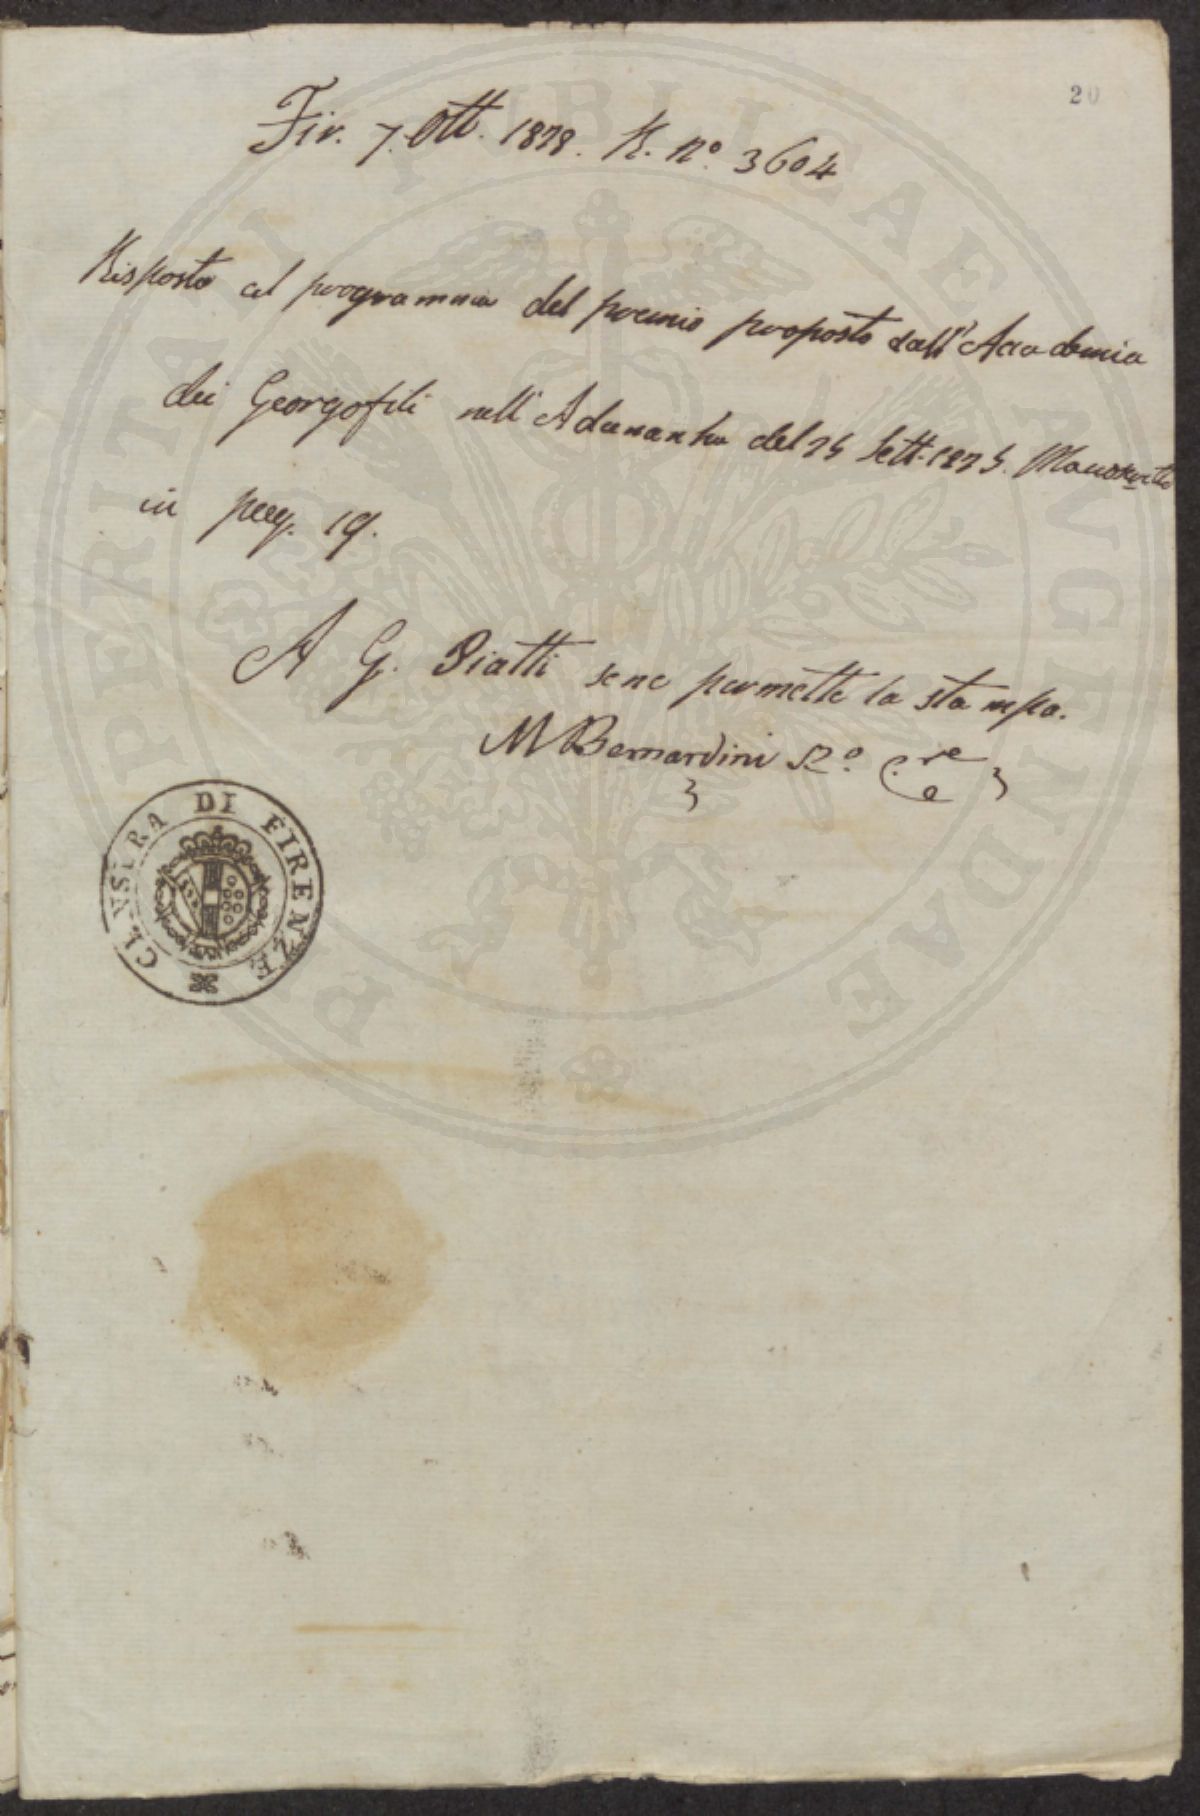 20
Fir. 7. Ott. 1828. R. N.º 3604
Risposta al programma del premio proposto dall'Accademia
dei Georgofili nell'Adunanza del 25 Sett. 1825. Manoscritto
in pag. 19.
A G. Piatti se ne permette la stampa.
M Bernardini
CENSURA DI FIRENZE
PROSPERITATI PUBLICAE AUGENDAE